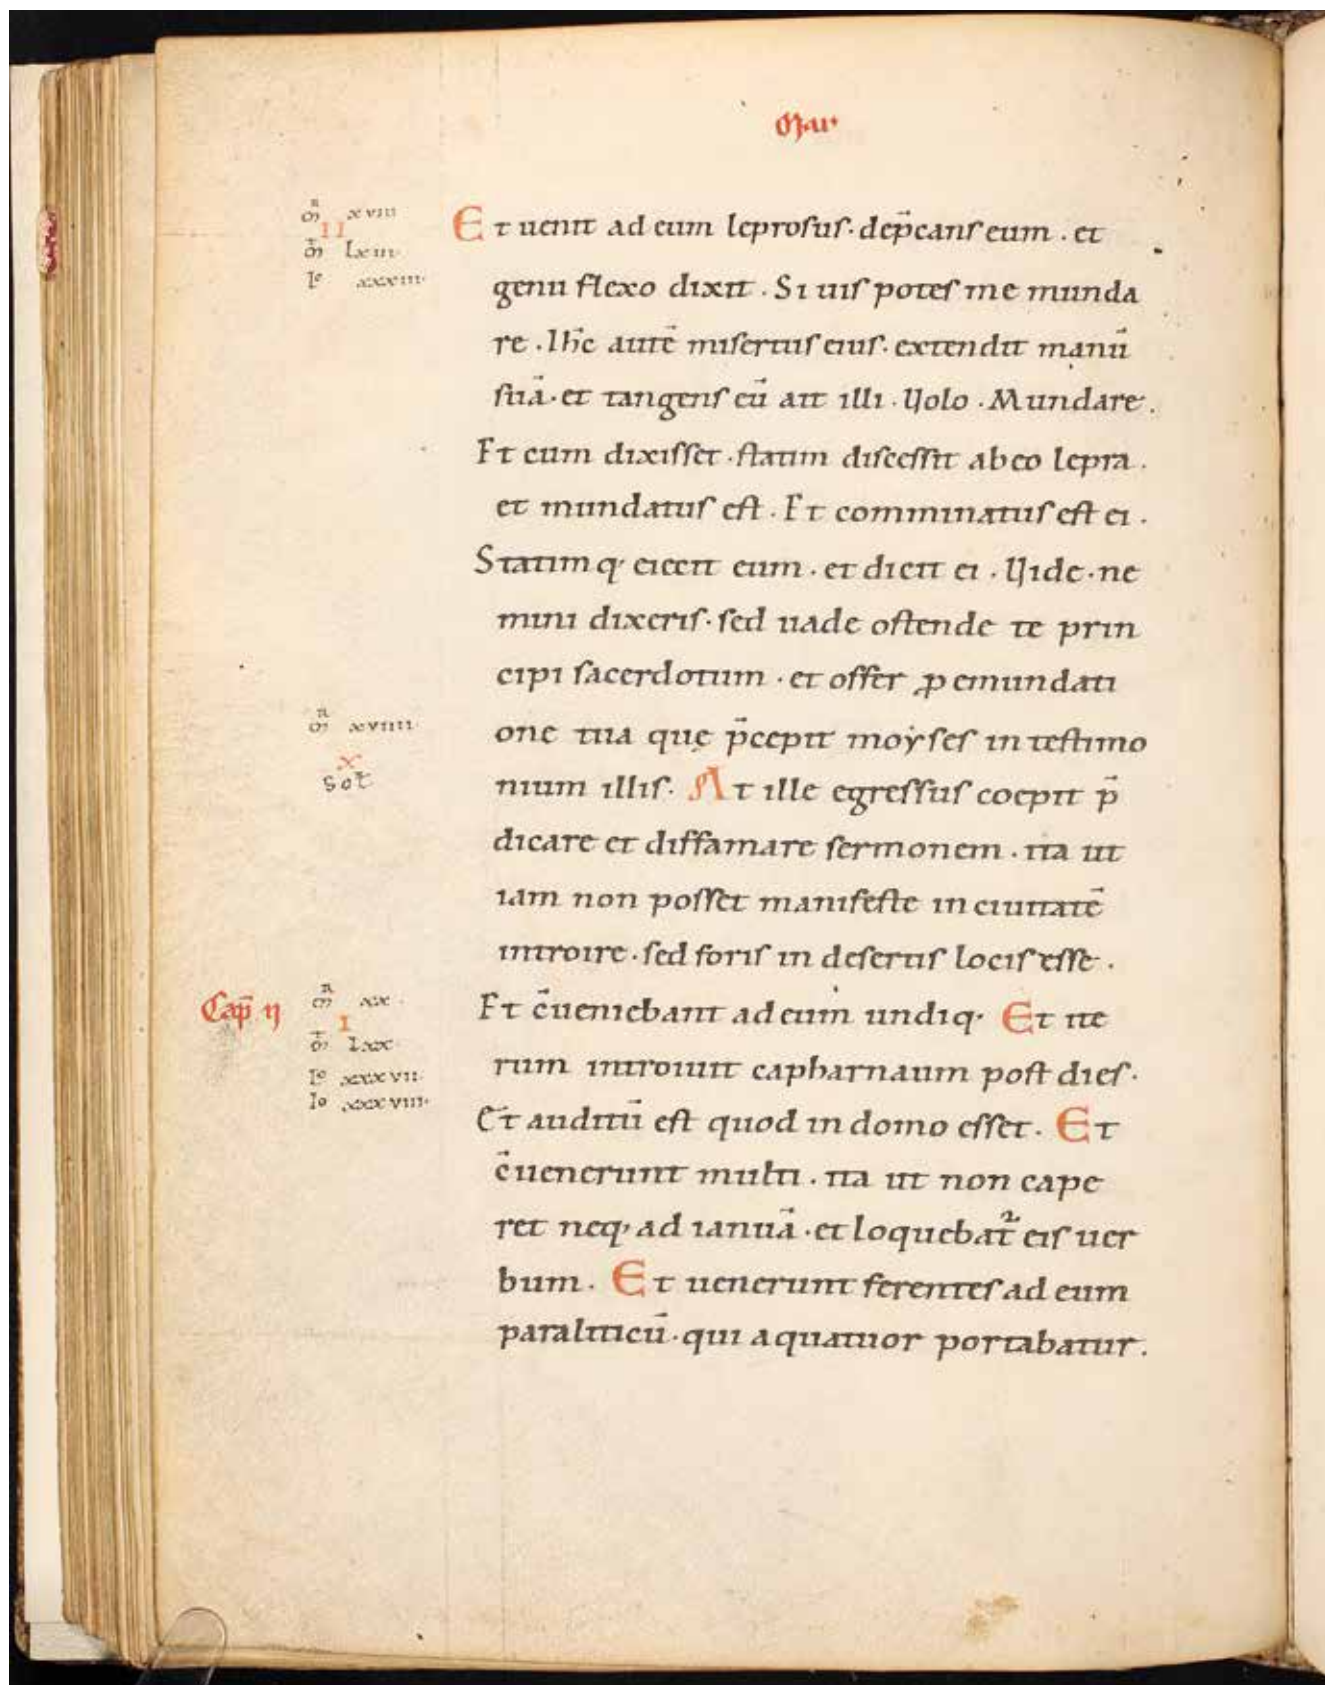 Mar
m̄ xviii
II
m̄ lxiii
Io xxxiii
Et uenit ad eum leprosus· dep̄cans eum · et
genu flexo dixit · Si uis potes me munda
re · Ih̄c autē misertus eius· extendit manū
suā· et tangens eū ait illi · Uolo · Mundare ·
Et cum dixisset · statim discessit ab eo lepra ·
et mundatus est · Et comminatus est ei ·
Statimq· eiecit eum · et dicit ei · Uide · ne
mini dixeris· sed uade ostende te prin
cipi sacerdotum · et offer ꝓ emundati
m̄ xviiii
x
sol̄
one tua quę p̄cepit moẏses in testimo
nium illis· At ille egressus coepit p̄
dicare et diffamare sermonem · ita ut
iam non posset manifeste in ciuitatē
introire · sed foris in desertis locis esse ·
Cap̄ II
m̄ xx
I
m̄ lxx
Io xxxvii
Io xxxviii
Et c̄ueniebant ad eum undiq· Et ite
rum introiuit capharnaum post dies ·
Et auditū est quod in domo esset · Et
c̄uenerunt multi · ita ut non cape
ret neq, ad ianuā · et loquebat᷑ eis uer
bum · Et uenerunt ferentes ad eum
paraliticū · qui a quatuor portabatur ·